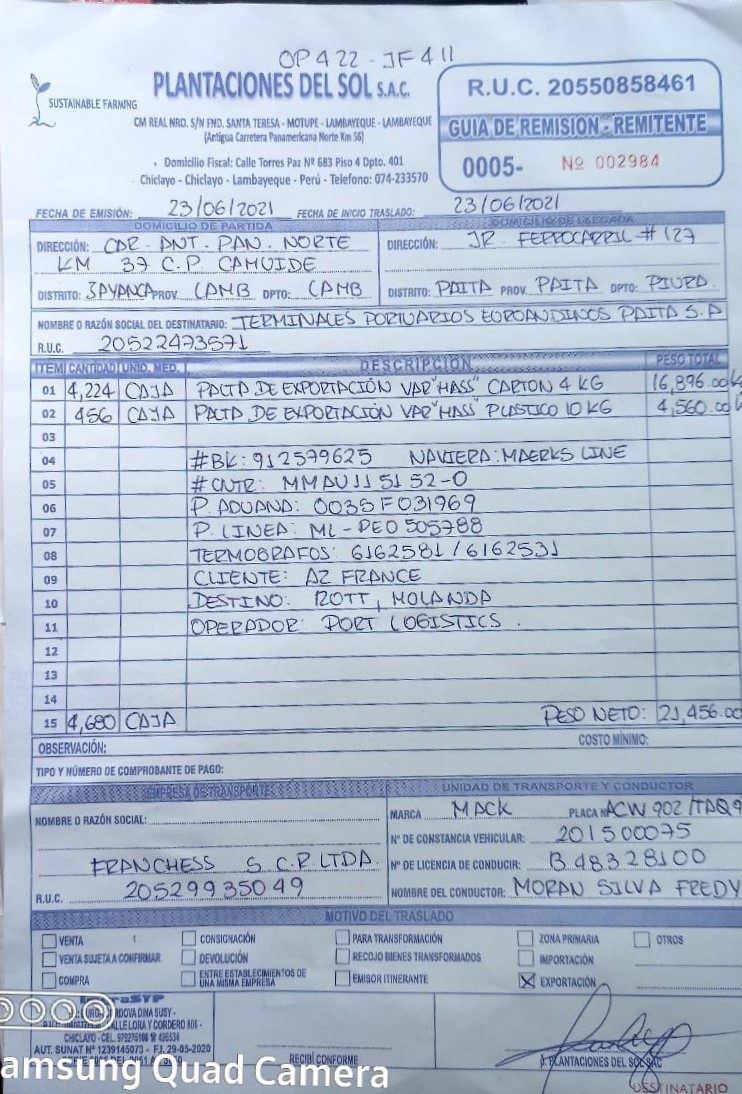 OP422-JF411
SUSTAINABLE FARMING
PLANTACIONES DEL SOL S.A.C.
CM REAL NRO. S/N FND. SANTA TERESA - MOTUPE - LAMBAYEQUE - LAMBAYEQUE
(Antigua Carretera Panamericana Norte Km 56)
Domicilio Fiscal: Calle Torres Paz Nº 683 Piso 4 Dpto. 401
Chiclayo - Chiclayo - Lambayeque - Perú - Telefono: 074-233570
R.U.C. 20550858461
GUIA DE REMISION - REMITENTE
0005- Nº 002984
FECHA DE EMISIÓN: 23/06/2021 FECHA DE INICIO TRASLADO: 23/06/2021
DOMICILIO DE PARTIDA
DIRECCIÓN: CAR. ANT. PAN. NORTE
KM 37 C.P. CAMUIDE
DISTRITO: JAYANCA PROV. LAMB DPTO: LAMB
DOMICILIO DE LLEGADA
DIRECCIÓN: JR. FERROCARRIL #127
DISTRITO: PAITA PROV. PAITA DPTO: PIURA
NOMBRE O RAZÓN SOCIAL DEL DESTINATARIO: TERMINALES PORTUARIOS EUROANDINOS PAITA S.A
R.U.C. 20522473571
ITEM CANTIDAD UNID. MED. DESCRIPCIÓN PESO TOTAL
01 4,224 CAJA PALTA DE EXPORTACIÓN VAR "HASS" CARTON 4 KG 16,896.00
02 456 CAJA PALTA DE EXPORTACIÓN VAR "HASS" PLASTICO 10 KG 4,560.00
03
04 #BK: 912579625 NAVIERA: MAERKS LINE
05 #CNTR: MMAU115152-0
06 P. ADUANA: 0035F031969
07 P. LINEA: ML-PE0505788
08 TERMOGRAFOS: 6162581 / 6162531
09 CLIENTE: AZ FRANCE
10 DESTINO: ROTT, HOLANDA
11 OPERADOR: PORT LOGISTICS.
12
13
14
15 4,680 CAJA PESO NETO: 21,456.00
OBSERVACIÓN: COSTO MÍNIMO:
TIPO Y NÚMERO DE COMPROBANTE DE PAGO:
EMPRESA DE TRANSPORTE
NOMBRE O RAZÓN SOCIAL:
FRANCHESS S.C.R.LTDA.
R.U.C. 20529935049
UNIDAD DE TRANSPORTE Y CONDUCTOR
MARCA MACK PLACA Nº ACW 902 /TAQ9
Nº DE CONSTANCIA VEHICULAR: 201500075
Nº DE LICENCIA DE CONDUCIR: B48328100
NOMBRE DEL CONDUCTOR: MORAN SILVA FREDY
MOTIVO DEL TRASLADO
VENTA CONSIGNACIÓN PARA TRANSFORMACIÓN ZONA PRIMARIA OTROS
VENTA SUJETA A CONFIRMAR DEVOLUCIÓN RECOJO BIENES TRANSFORMADOS IMPORTACIÓN
COMPRA ENTRE ESTABLECIMIENTOS DE UNA MISMA EMPRESA EMISOR ITINERANTE EXPORTACIÓN
CALLE LORA Y CORDERO 806 -
AUT. SUNAT Nº 1239145073 - F.I. 29-05-2020
RECIBÍ CONFORME
p. PLANTACIONES DEL SOL SAC
DESTINATARIO
amsung Quad Camera